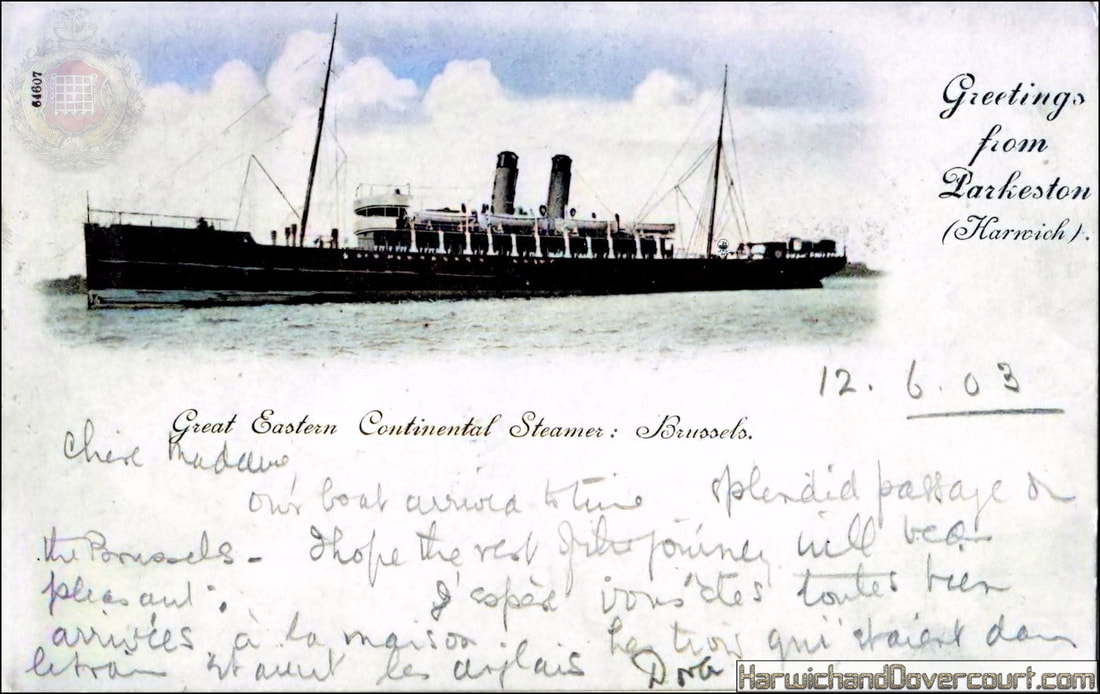 64607
Greetings
from
Parkeston
(Harwich).
12. 6. 03
Great Eastern Continental Steamer: Brussels.
Chère Madame
Our boat arrived to time splendid passage on
the Brussels - I hope the rest of the journey will be as
pleasant. J'espère vous êtes toutes bien
arrivées à la maison trois qui étaient dans
le train étaient les anglais Dora
HarwichandDovercourt.com